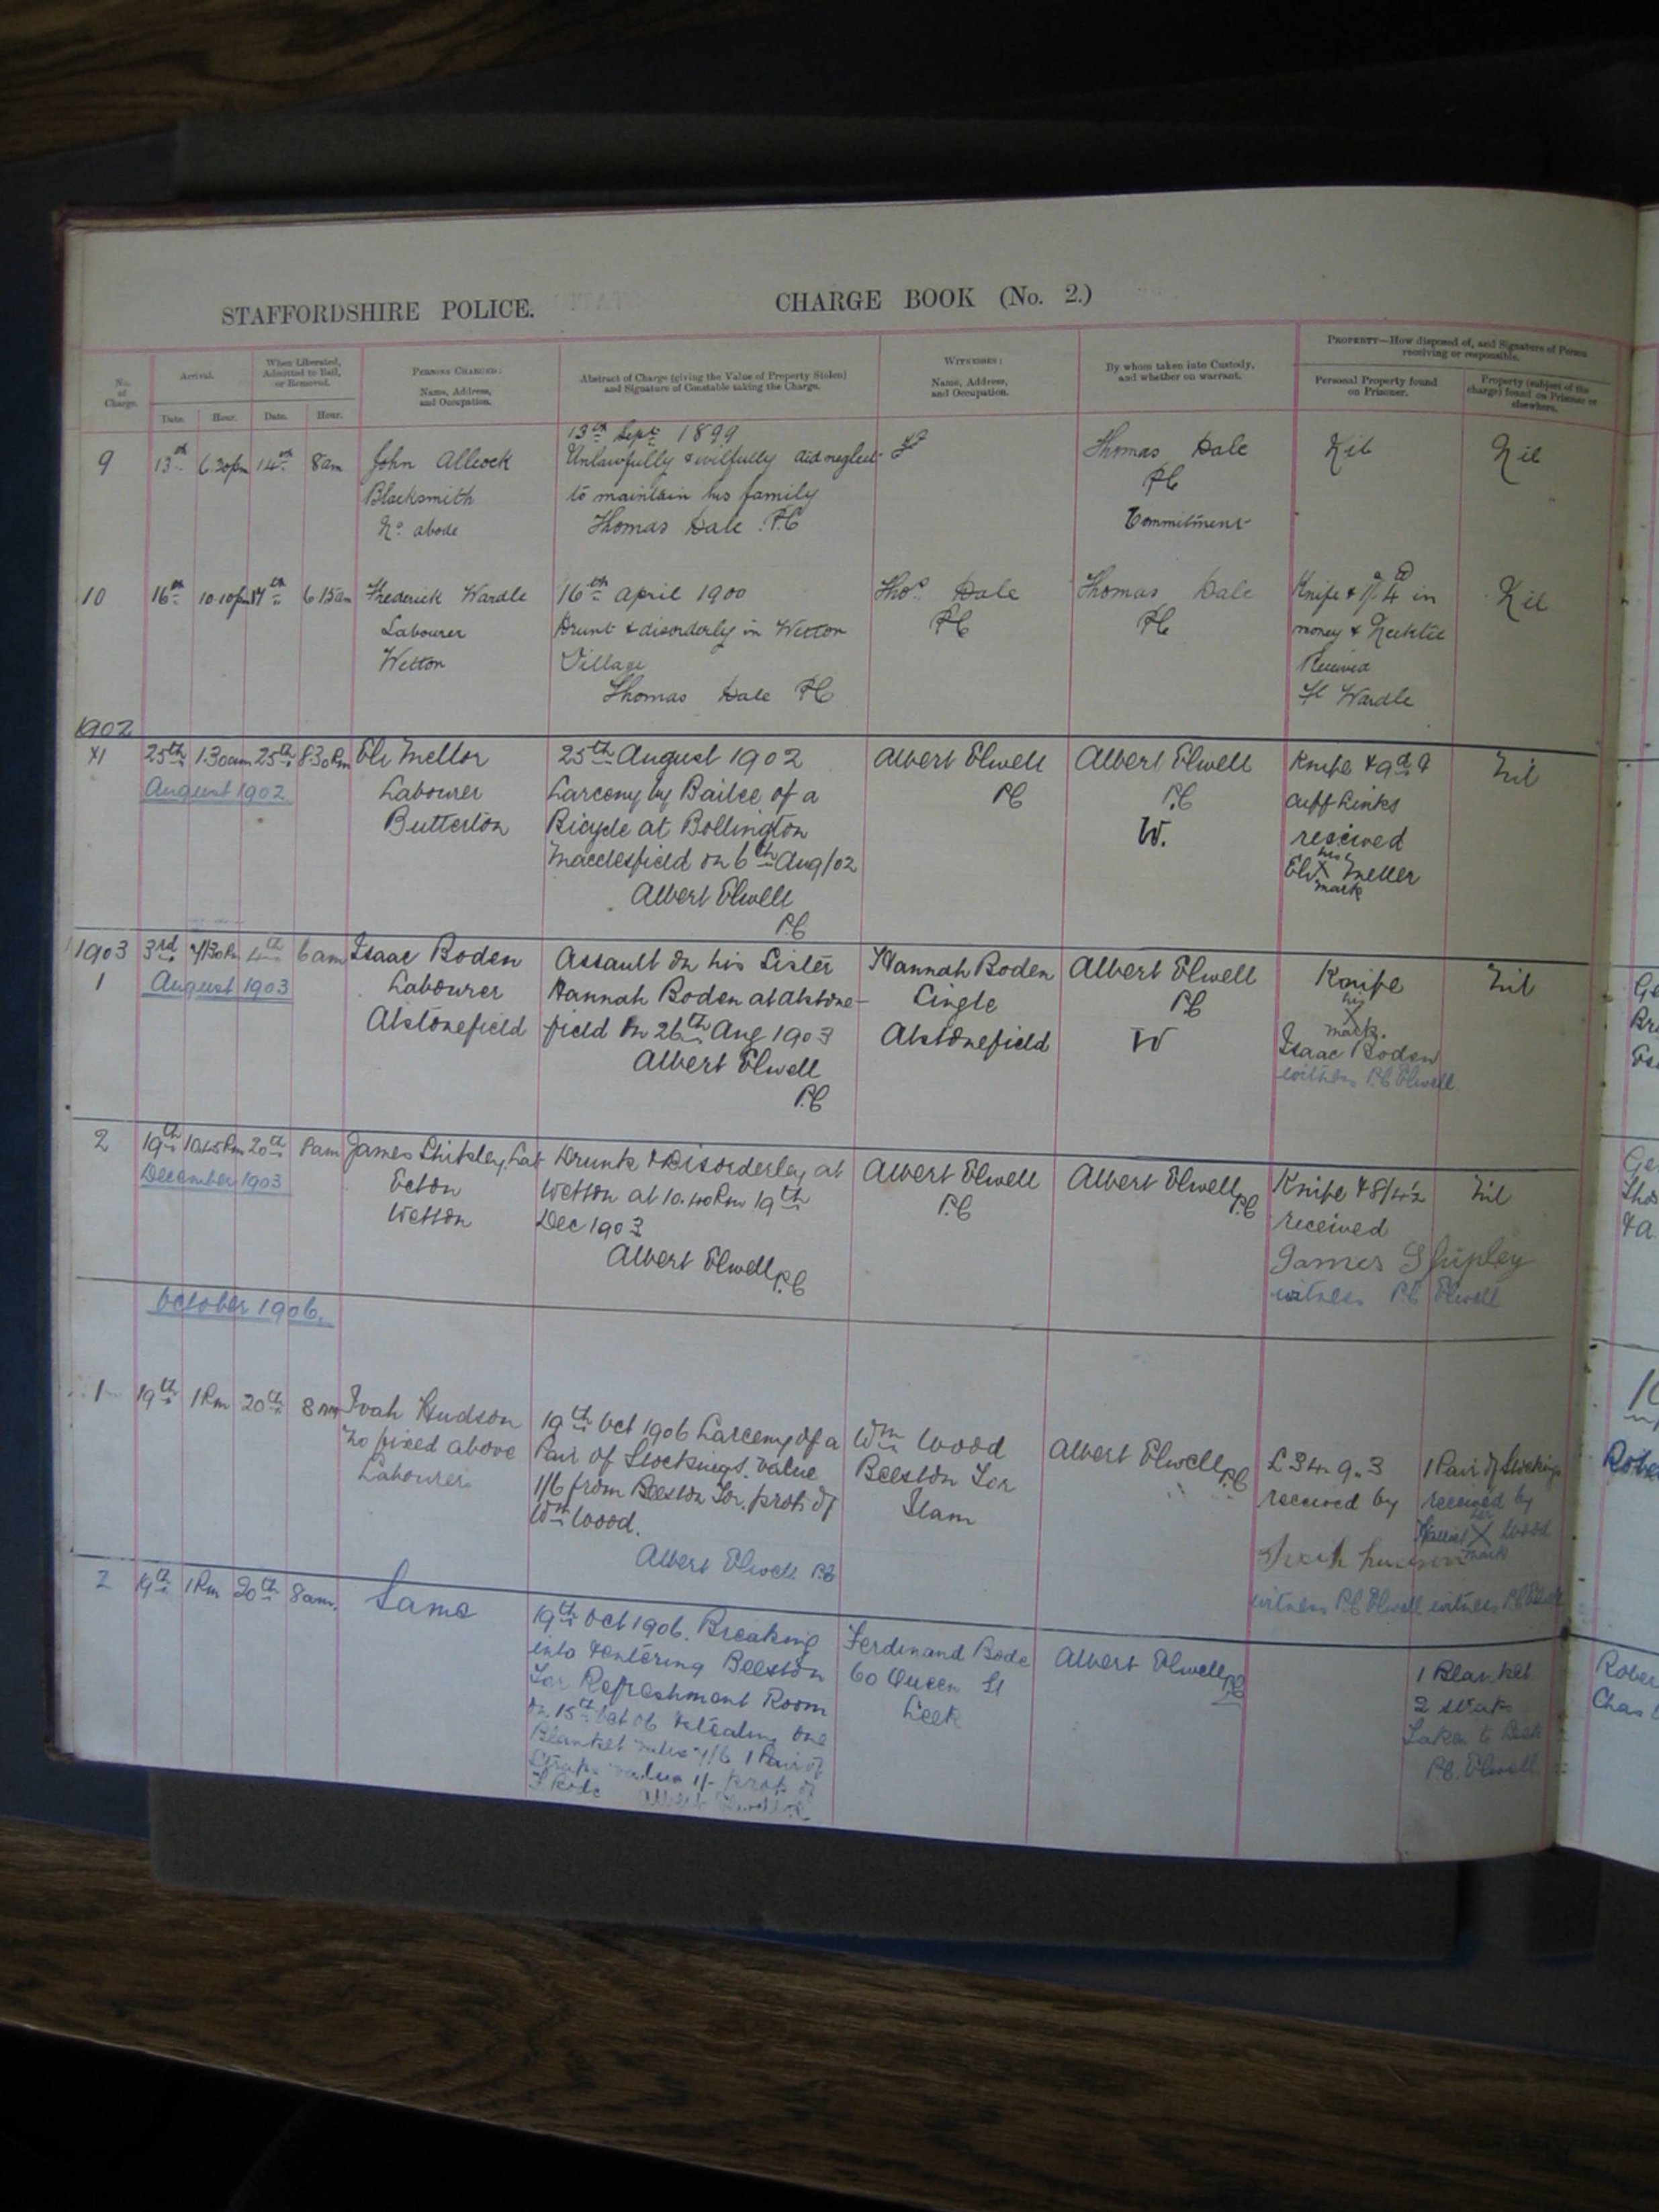 STAFFORDSHIRE POLICE. CHARGE BOOK (No. 2.)
No. of Charge.
Arrival.
Date. Hour.
When Liberated, Admitted to Bail, or Removed.
Date. Hour.
PERSONS CHARGED:
Name, Address, and Occupation.
Abstract of Charge (giving the Value of Property Stolen) and Signature of Constable taking the Charge.
WITNESSES:
Name, Address, and Occupation.
By whom taken into Custody, and whether on warrant.
PROPERTY—How disposed of, and Signature of Person receiving or responsible.
Personal Property found on Prisoner.
Property (subject of the charge) found on Prisoner or elsewhere.
9 13th 6.30pm 14th 8am
John Allcock
Blacksmith
No abode
13th Sept 1899
Unlawfully & wilfully did neglect
to maintain his family
Thomas Dale PC
Thomas Dale
PC
Commitment
Nil
Nil
10 16th 10.10pm 17th 6.15am
Frederick Wardle
Labourer
Wetton
16th April 1900
Drunk & disorderly in Wetton
Village
Thomas Dale PC
Thos Dale
PC
Thomas Dale
PC
Knife & 4 in
money & Necktie
Received
Wardle
Nil
1902
11 25th 1.30am 25th 8.30Pm
August 1902
Eli Mellor
Labourer
Butterton
25th August 1902
Larceny by Bailee of a
Bicycle at Bollington
Macclesfield on 6th Aug/02
Albert Elwell
PC
Albert Elwell
PC
Albert Elwell
P.C
W.
Knife & 9d &
Cuff Links
received
his
Eli X Meller
mark
Nil
1903 3rd 7/30Pm 4th 6am
1 August 1903
Isaac Boden
Labourer
Alstonefield
Assault on his Sister
Hannah Boden at Alstone-
field on 26th Aug 1903
Albert Elwell
P.C
Hannah Boden
Single
Alstonefield
Albert Elwell
PC
W
Knife
his
X
mark.
Isaac Boden
witness P.C Elwell
Nil
2 19th 10.45Pm 20th 8am
December 1903
James Shipley
Ecton
Wetton
Drunk & Disorderley at
Wetton at 10.40Pm 19th
Dec 1903
Albert Elwell P.C
Albert Elwell
P.C
Albert Elwell P.C
Knife & 8/4½
received
James Shipley
witness P.C Elwell
Nil
October 1906.
1 19th 1Pm 20th 8am
Ivah Hudson
No fixed above
Labourer
19th Oct 1906 Larceny of a
Pair of Stockings. Value
1/6 from Beeston Tor. prop. of
Wm Wood.
Albert Elwell PC
Wm Wood
Beeston Tor
Ilam
Albert Elwell PC
£34.9.3
received by
witness P.C Elwell
1 Pair of Stockings
received by
her
X Wood
mark
witness P.C Elwell
2 19th 1Pm 20th 8am.
Same
19th Oct 1906. Breaking
into & entering Beeston
Tor Refreshment Room
on 15th Oct 06 & stealing one
Blanket value 4/6 1 Pair of
Straps value 1/- prop of
F Bode Albert Elwell P.C
Ferdinand Bode
60 Queen St
Leek
Albert Elwell PC
1 Blanket
2 straps
Taken to Leek
P.C. Elwell